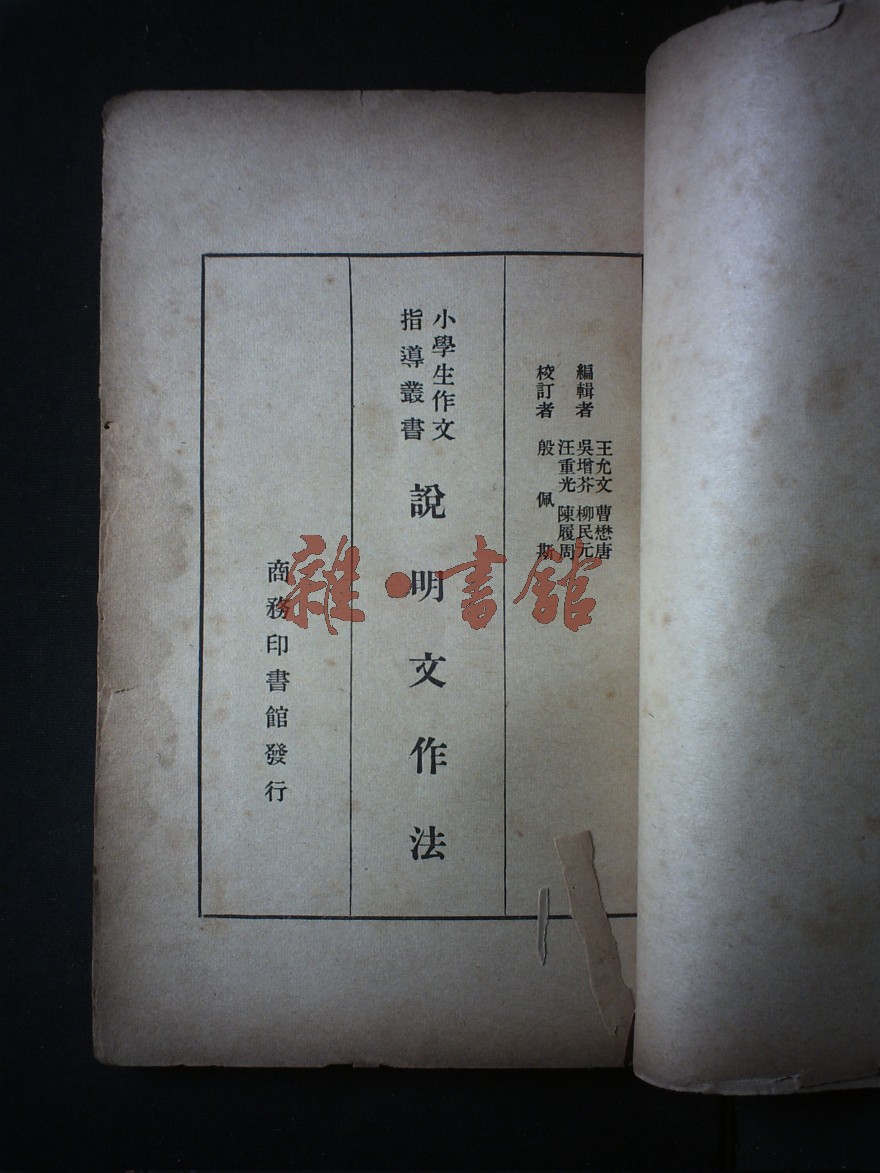 編輯者
王允文 曹懋唐
吳增芥 柳民元
汪重光 陳履周
校訂者 殷佩斯
小學生作文
指導叢書
說明文作法
商務印書館發行
雜·書館